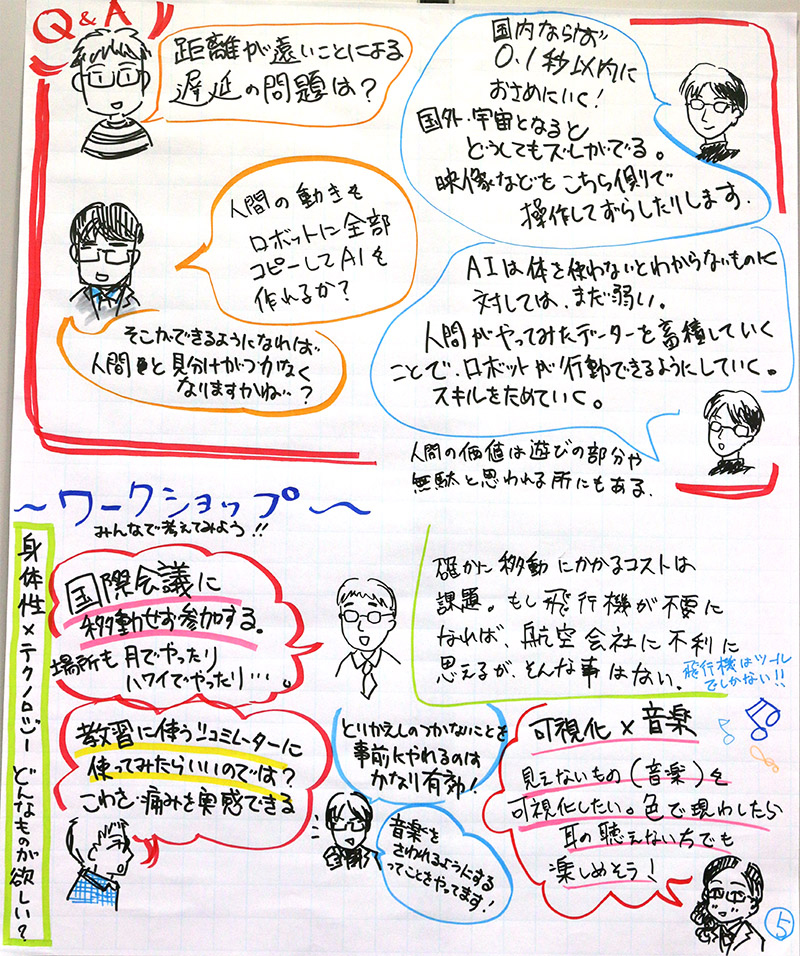 Q & A
距離が遠いことによる
遅延の問題は？
国内ならば
0.1秒以内に
おさめにいく！
国外・宇宙となると
どうしてもズレがでる。
映像などをこちら側で
操作してずらしたりします.
人間の動きを
ロボットに全部
コピーしてAIを
作れるか？
そこができるようになれば
人間と見分けがつかなく
なりますかね…？
AIは体を使わないとわからないものに
対しては、まだ弱い。
人間がやってみたデーターを蓄積していく
ことで、ロボットが行動できるようにしていく。
スキルをためていく。
人間の価値は遊びの部分や
無駄と思われる所にもある.
～ワークショップ～
みんなで考えてみよう!!
身体性×テクノロジー どんなものが欲しい？
国際会議に
移動せず参加する。
場所も月でやったり
ハワイでやったり…。
確かに移動にかかるコストは
課題。もし飛行機が不要に
なれば、航空会社に不利に
思えるが、そんな事はない.
飛行機はツール
でしかない!!
教習に使うシュミレーターに
使ってみたらいいのでは？
こわさ・痛みを実感できる
とりかえしのつかないことを
事前にやれるのは
かなり有効！
音楽を
さわれるようにする
ってことをやってます！
可視化×音楽
見えないもの(音楽)を
可視化したい。色で現わしたら
耳の聴えない方でも
楽しめそう！
5